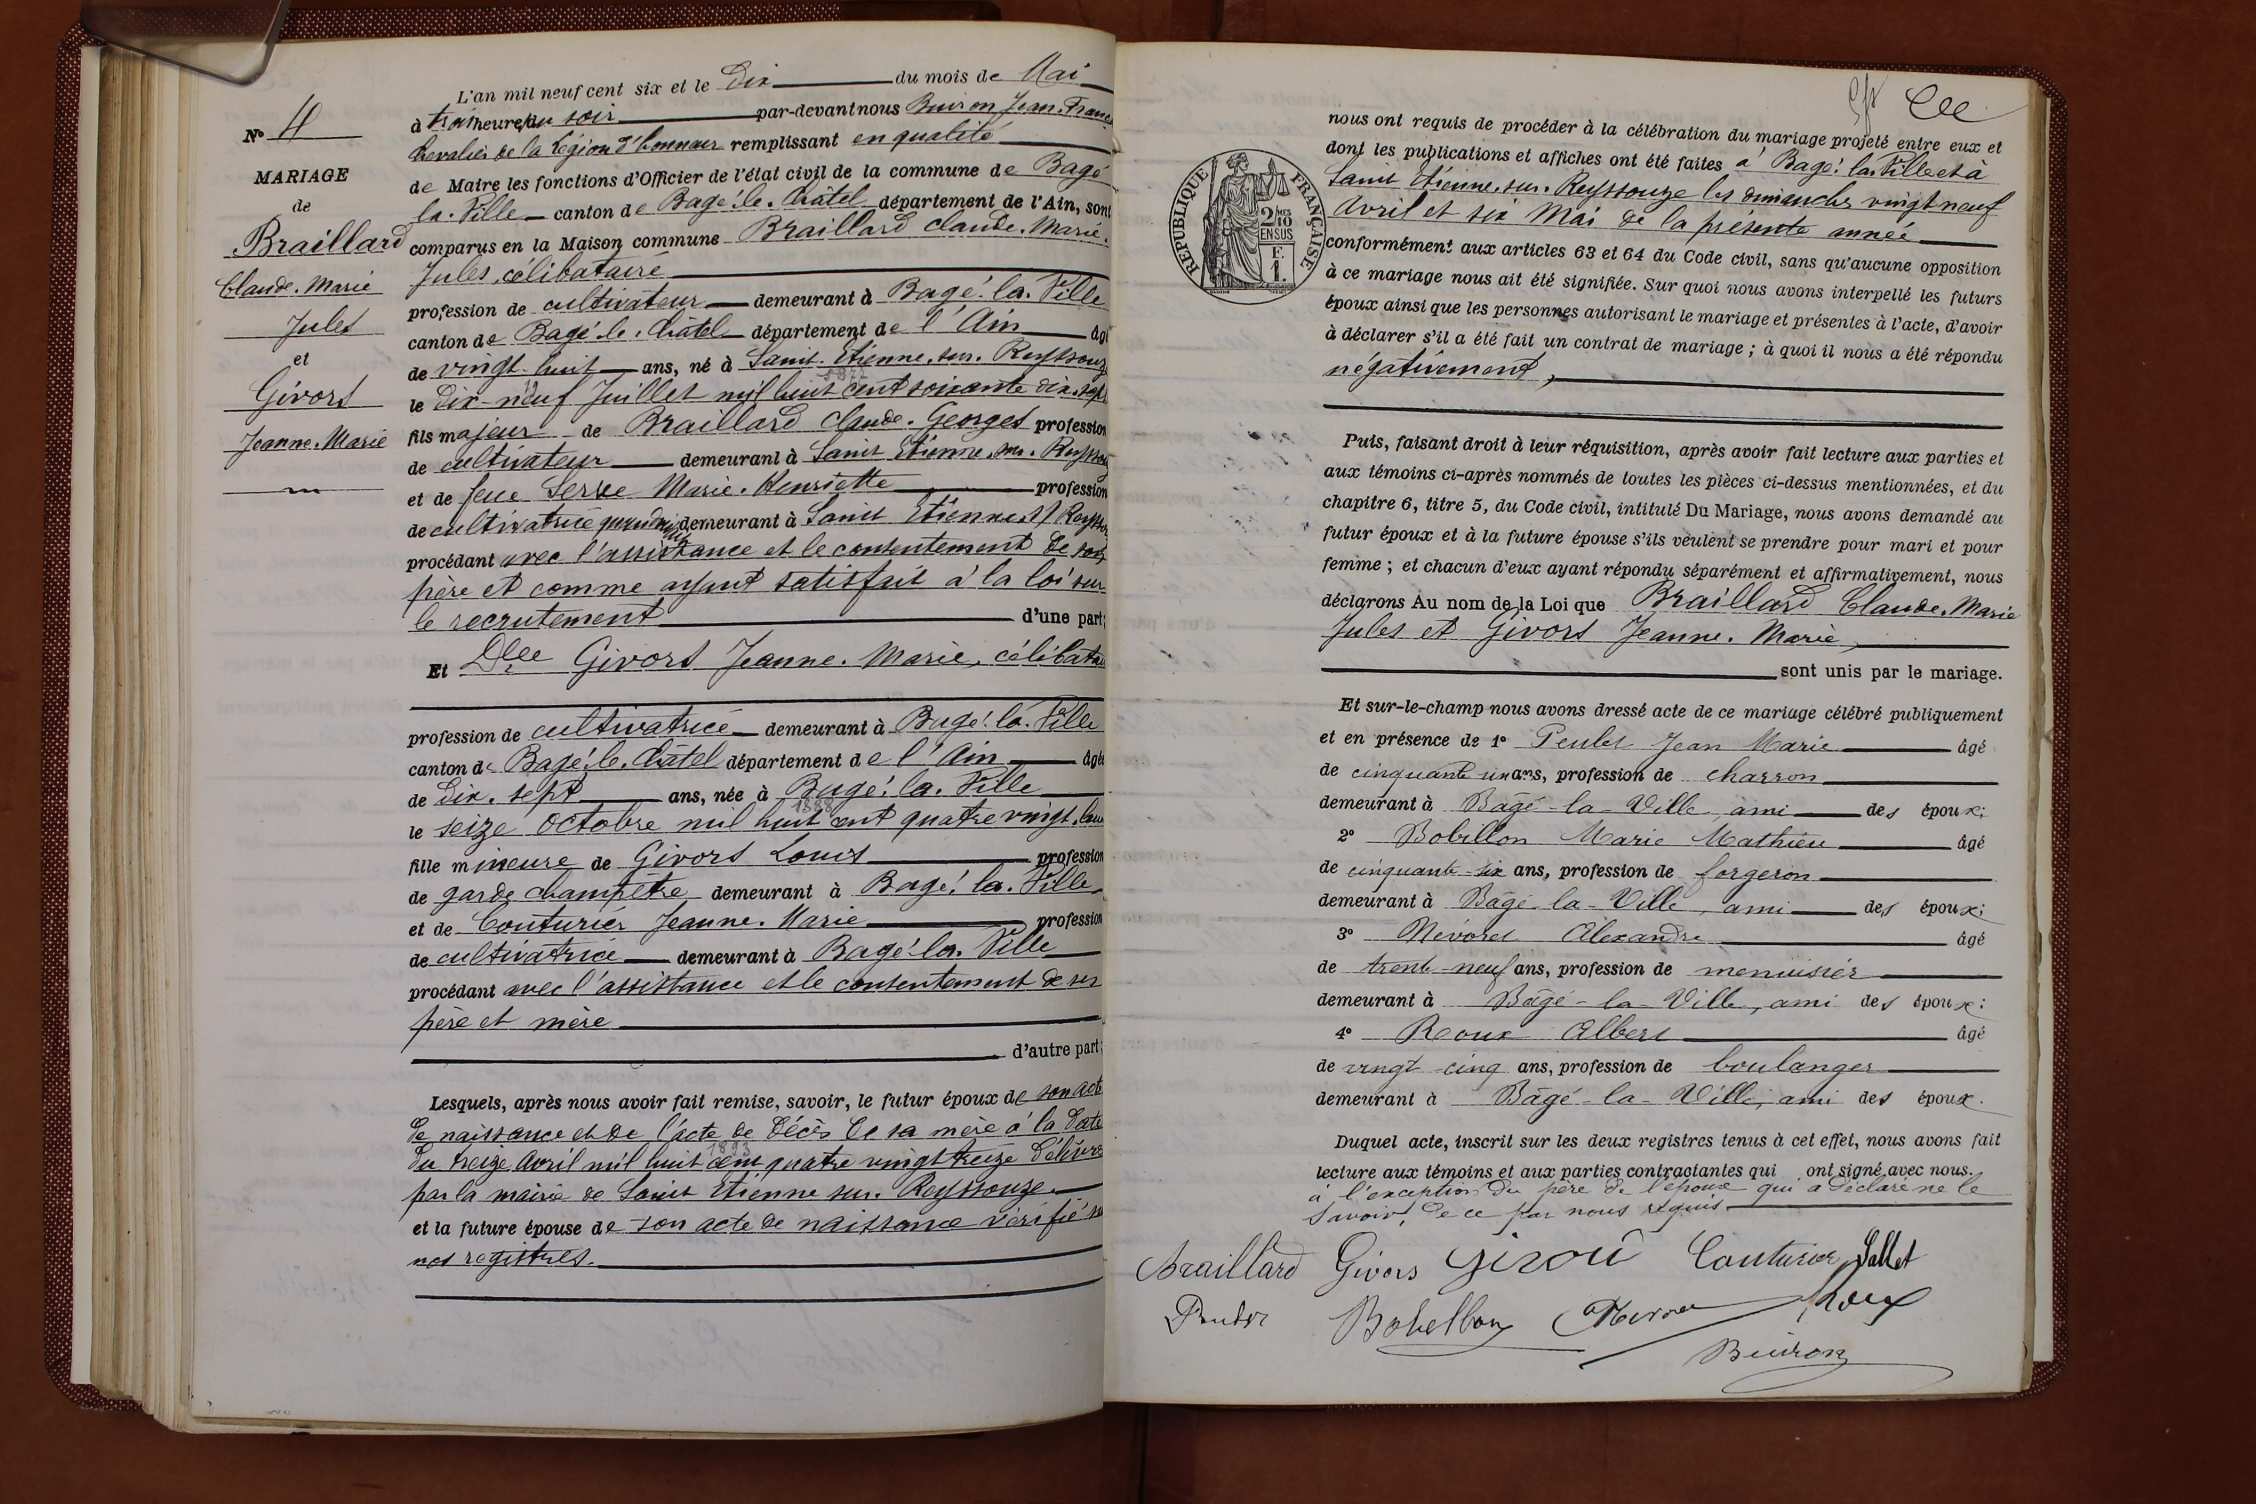 L'an mil neuf cent six et le Dix du mois de Mai
à trois heures du soir par-devant nous Buiron Jean. Franç
Chevalier de la Légion d'honneur remplissant en qualité
de Maire les fonctions d'Officier de l'état civil de la commune de Bagé
la. Ville canton de Bagé. le. Châtel département de l'Ain, sont
comparus en la Maison commune Braillard Claude. Marie.
Jules, célibataire
profession de cultivateur demeurant à Bagé. la. Ville
canton de Bagé. le. Châtel département de l'Ain âgé
de vingt. huit ans, né à Saint. Etienne. sur. Reyssouze
1877
le Dix-neuf Juillet mil huit cent soixante dix. sept
19
fils majeur de Braillard Claude. Georges profession
de cultivateur demeurant à Saint Etienne. sur. Reyssou
et de feue Serve Marie. Henriette profession
de cultivatrice demeurant à Saint Etienne s/ Reysso
procédant avec l'assistance et le consentement de son
père et comme ayant satisfait à la loi sur
le recrutement d'une part;
Et Dlle Givors Jeanne. Marie, célibatai
profession de cultivatrice demeurant à Bagé. la. Ville
canton de Bagé. le. Châtel département de l'Ain âgée
de Dix. sept ans, née à Bagé. la. Ville
1888
le seize Octobre mil huit cent quatre vingt. huit
fille mineure de Givors Louis profession
de garde champêtre demeurant à Bagé. la. Ville
et de Couturier Jeanne. Marie profession
de cultivatrice demeurant à Bagé. la. Ville
procédant avec l'assistance et le consentement de ses
père et mère
d'autre part;
Lesquels, après nous avoir fait remise, savoir, le futur époux de son acte
de naissance et de l'acte de décès de sa mère à la date
1893
du treize Avril mil huit cent quatre vingt treize délivré
par la mairie de Saint Etienne sur. Reyssouze
et la future épouse de son acte de naissance vérifié su
nos registres.
N° 4
MARIAGE
de
Braillard
Claude. Marie
Jules
et
Givors
Jeanne. Marie
nous ont requis de procéder à la célébration du mariage projeté entre eux et
dont les publications et affiches ont été faites à Bagé. la. Ville et à
Saint Etienne. sur. Reyssouze les dimanches vingt neuf
Avril et six Mai de la présente année
conformément aux articles 63 et 64 du Code civil, sans qu'aucune opposition
à ce mariage nous ait été signifiée. Sur quoi nous avons interpellé les futurs
époux ainsi que les personnes autorisant le mariage et présentes à l'acte, d'avoir
à déclarer s'il a été fait un contrat de mariage; à quoi il nous a été répondu
négativement,
RÉPUBLIQUE FRANÇAISE
2/10 MES
EN SUS
F.
1.
Puis, faisant droit à leur réquisition, après avoir fait lecture aux parties et
aux témoins ci-après nommés de toutes les pièces ci-dessus mentionnées, et du
chapitre 6, titre 5, du Code civil, intitulé Du Mariage, nous avons demandé au
futur époux et à la future épouse s'ils veulent se prendre pour mari et pour
femme; et chacun d'eux ayant répondu séparément et affirmativement, nous
déclarons Au nom de la Loi que Braillard Claude. Marie
Jules et Givors Jeanne. Marie,
sont unis par le mariage.
Et sur-le-champ nous avons dressé acte de ce mariage célébré publiquement
et en présence de 1° Jean Marie âgé
de cinquante un ans, profession de charron
demeurant à Bâgé-la-Ville, ami des époux;
2° Bobillon Marie Mathieu âgé
de cinquante-six ans, profession de forgeron
demeurant à Bâgé-la-Ville, ami des époux;
3° Névoret Alexandre âgé
de trente-neuf ans, profession de menuisier
demeurant à Bâgé-la-Ville, ami des époux;
4° Roux Albert âgé
de vingt-cinq ans, profession de boulanger
demeurant à Bâgé-la-Ville, ami des époux.
Duquel acte, inscrit sur les deux registres tenus à cet effet, nous avons fait
lecture aux témoins et aux parties contractantes qui ont signé avec nous.
à l'exception du père de l'époux qui a déclaré ne le
savoir, de ce par nous requis
Braillard Givors Couturier
Bobillon Roux
Buiron